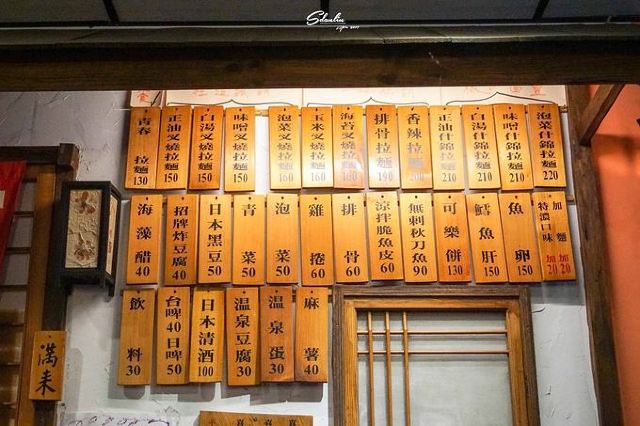 Sdoulin
青春拉麵 130
正油叉燒拉麵 150
白湯叉燒拉麵 150
味噌叉燒拉麵 150
泡菜叉燒拉麵 160
玉米叉燒拉麵 160
海苔叉燒拉麵 160
排骨拉麵 190
香辣拉麵 200
正油什錦拉麵 210
白湯什錦拉麵 210
味噌什錦拉麵 210
泡菜什錦拉麵 220
海藻醋 40
招牌炸豆腐 40
日本黑豆 50
青菜 50
泡菜 50
雞捲 60
排骨 60
涼拌脆魚皮 60
無刺秋刀魚 90
可樂餅 130
鱈魚肝 150
魚卵 150
特濃口味 加20
加麵 加20
飲料 30
台啤40 日啤50
日本清酒 100
溫泉豆腐 30
溫泉蛋 30
麻薯 40
滿来